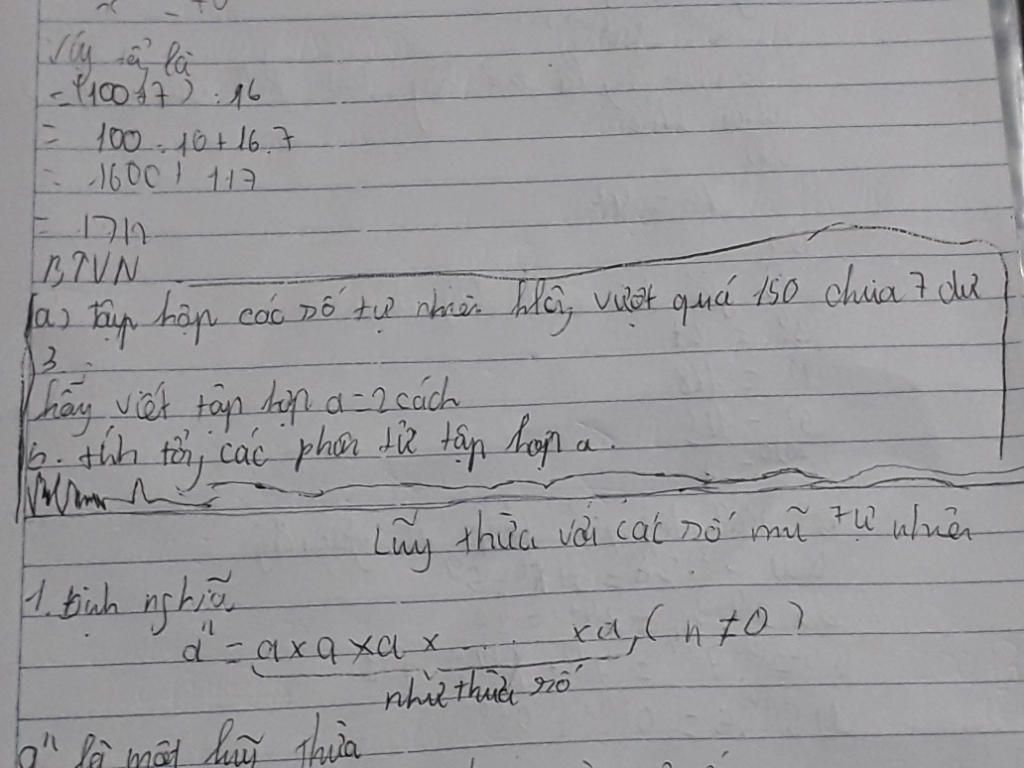 Vậy tổng là
= (100+7).16
= 100.10+16.7
= 1600+117
= 1717
BTVN
a) tập hợp các số tự nhiên không vượt quá 150 chia 7 dư
3.
hãy viết tập hợp a = 2 cách
b. tính tổng các phần tử tập hợp a.
Lũy thừa với các số mũ tự nhiên
1. Định nghĩa
aⁿ = a x a x a x ... x a, ( n ≠ 0 )
thừa số
aⁿ là một lũy thừa